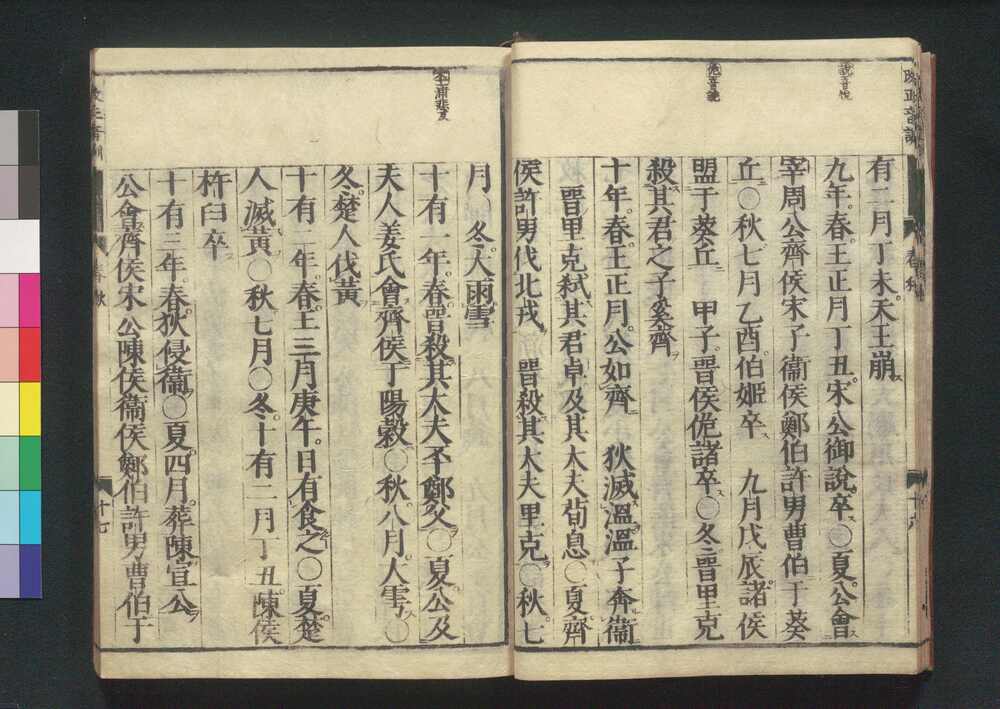 說音悅
佹音詭
有二月丁未天王崩
九年春王正月丁丑宋公御說卒○夏公會
宰周公齊侯宋子衞侯鄭伯許男曹伯于葵
丘○秋七月乙酉伯姬卒　九月戊辰諸侯
盟于葵丘　甲子晉侯佹諸卒○冬晉里克
殺其君之子奚齊
十年春王正月公如齊　狄滅溫溫子奔衞
晉里克弒其君卓及其大夫荀息○夏齊
侯許男伐北戎　晉殺其大夫里克○秋七
月　冬大雨雪
十有一年春晉殺其大夫丕鄭父○夏公及
夫人姜氏會齊侯于陽穀○秋八月大雩○
冬楚人伐黃
十有二年春王三月庚午日有食之○夏楚
人滅黃○秋七月○冬十有二月丁丑陳侯
杵臼卒
十有三年春狄侵衞○夏四月葬陳宣公
公會齊侯宋公陳侯衞侯鄭伯許男曹伯于
春秋
十七